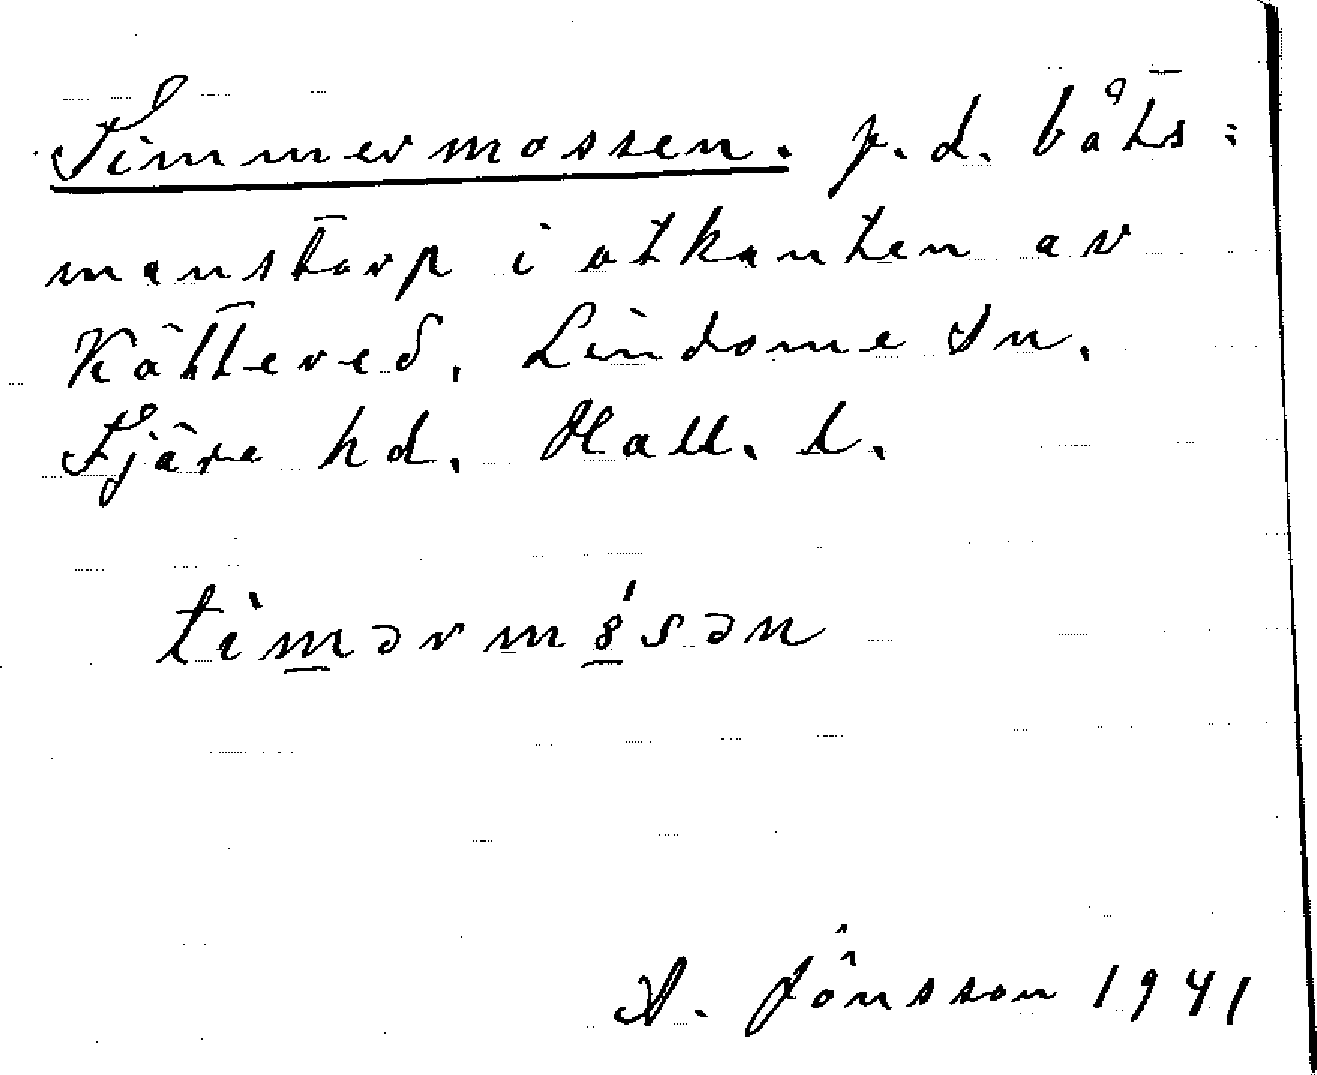 Timmermossen. f. d. båts:
manstorp i utkanten av
Kåttered, Lindome Sn.
Fjäre hd. Hall. l.
timərmȣsən
A. Jönsson 1941